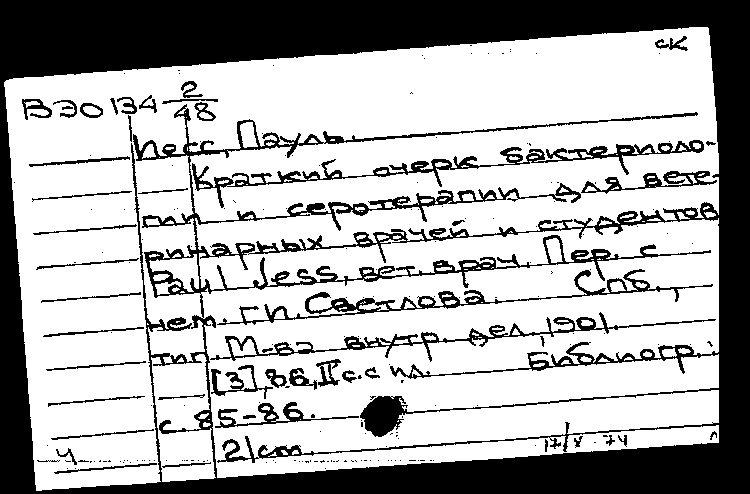 СК
ВЭО 134 2/48
Иесс, Пауль.
Краткий очерк бактериоло-
гии и серотерапии для вете-
ринарных врачей и студентов
Paul Jess, вет. врач. Пер. с
нем. Г.И. Светлова. Спб.,
тип. М-ва внутр. дел, 1901.
[3], 86, II с. с ил. Библиогр.:
с. 85-86.
21 cm.
Ч 17/X-74